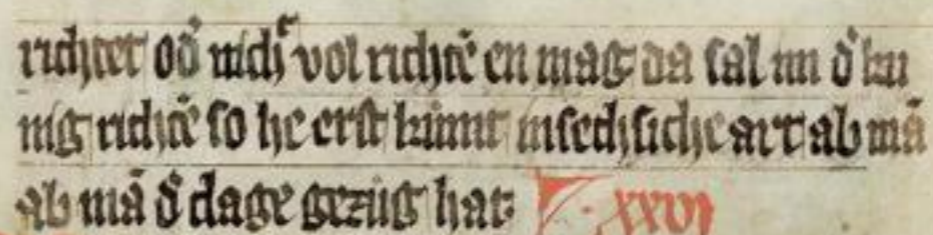 richtet od̄ nich͛ vol richtē en mag da sal nn d̄ ku
nig richtē so he erst kumt in sechsiche art ab mā
ab mā d̄ clage gezug hat xxvi